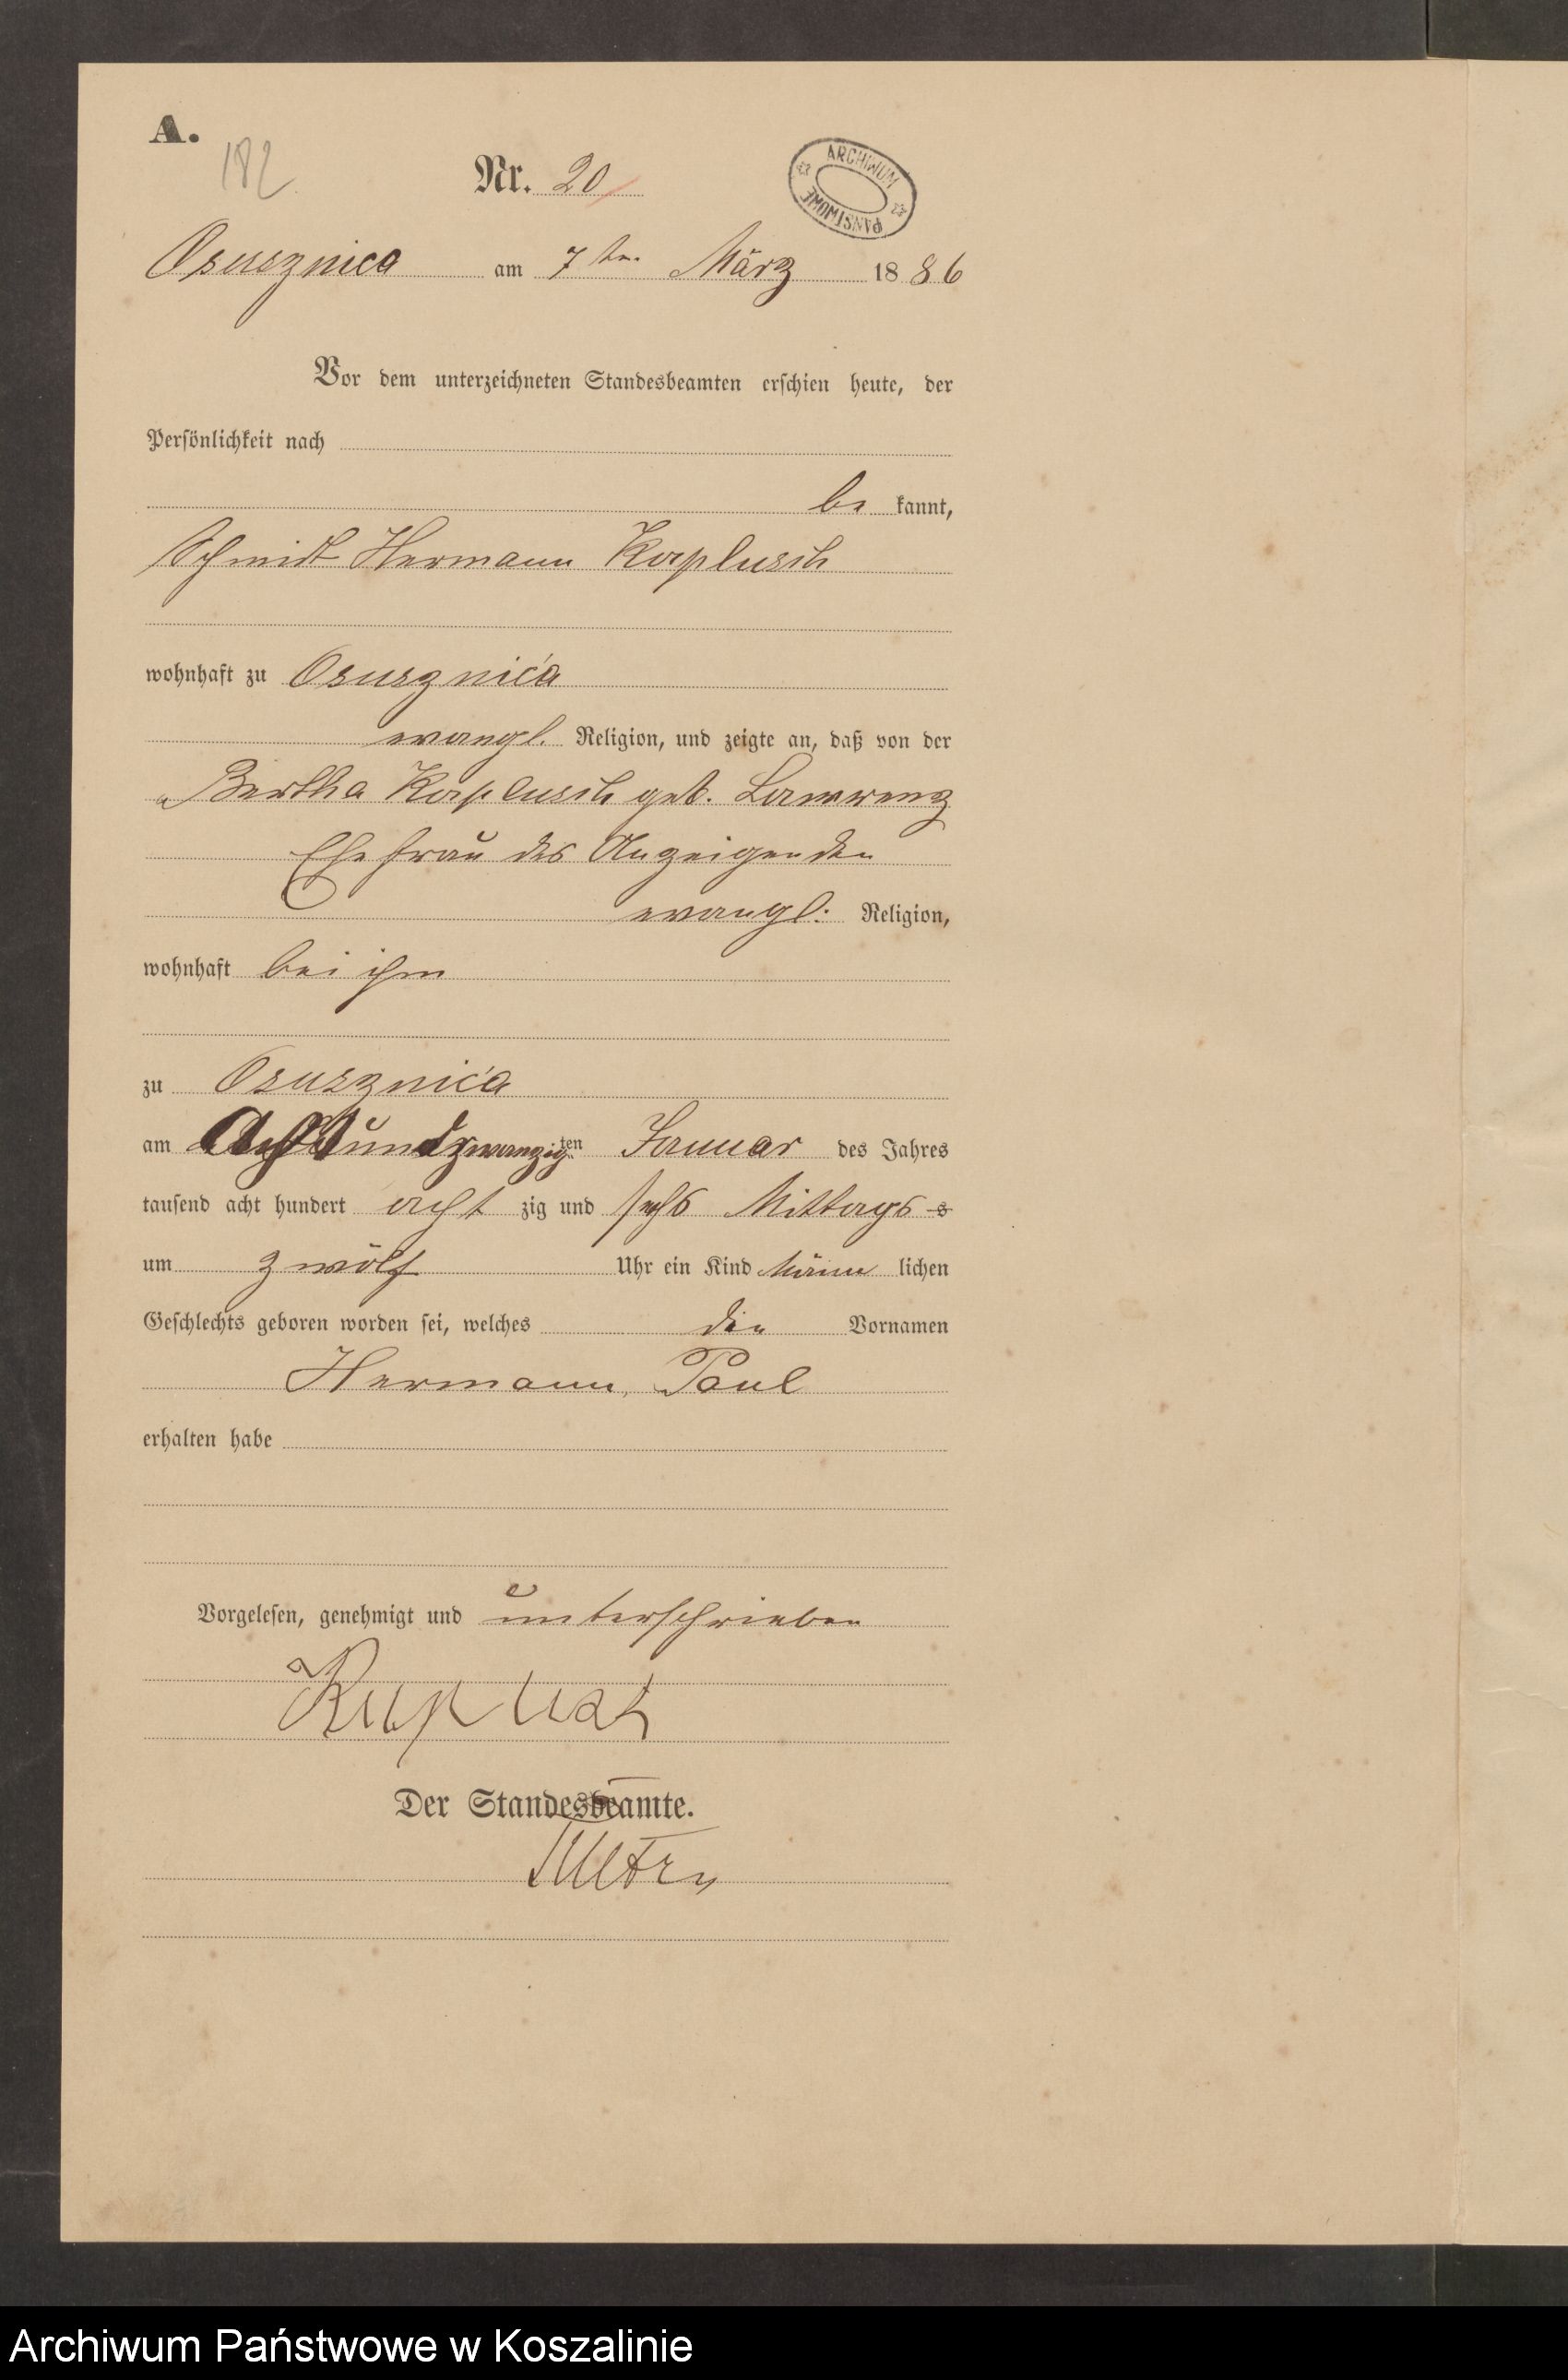 A.
182
Nr. 20
ARCHIWUM PAŃSTWOWE
Osusznica am 7ten März 1886
Vor dem unterzeichneten Standesbeamten erschien heute, der
Persönlichkeit nach
be kannt,
Schmidt Hermann
wohnhaft zu Osusznica
evangl. Religion, und zeigte an, daß von der
Bertha geb.
Ehefrau des Anzeigenden
evangl. Religion,
wohnhaft bei ihm
zu Osusznica
am Achtundzwanzigten Januar des Jahres
tausend acht hundert acht zig und sechs Mittags s
um zwölf Uhr ein Kind Männ lichen
Geschlechts geboren worden sei, welches die Vornamen
Hermann, Paul
erhalten habe
Vorgelesen, genehmigt und unterschrieben
Der Standesbeamte.
Archiwum Państwowe w Koszalinie